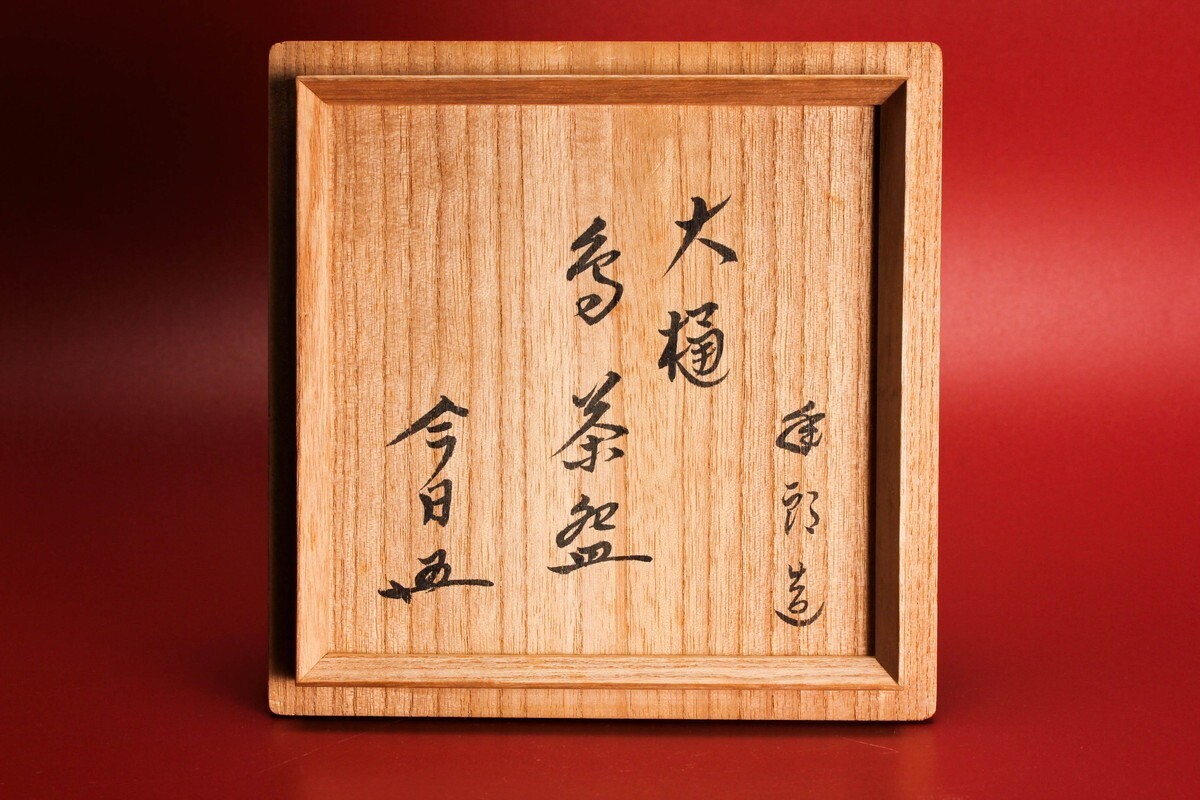 年朗造
大樋
茶盌
今日